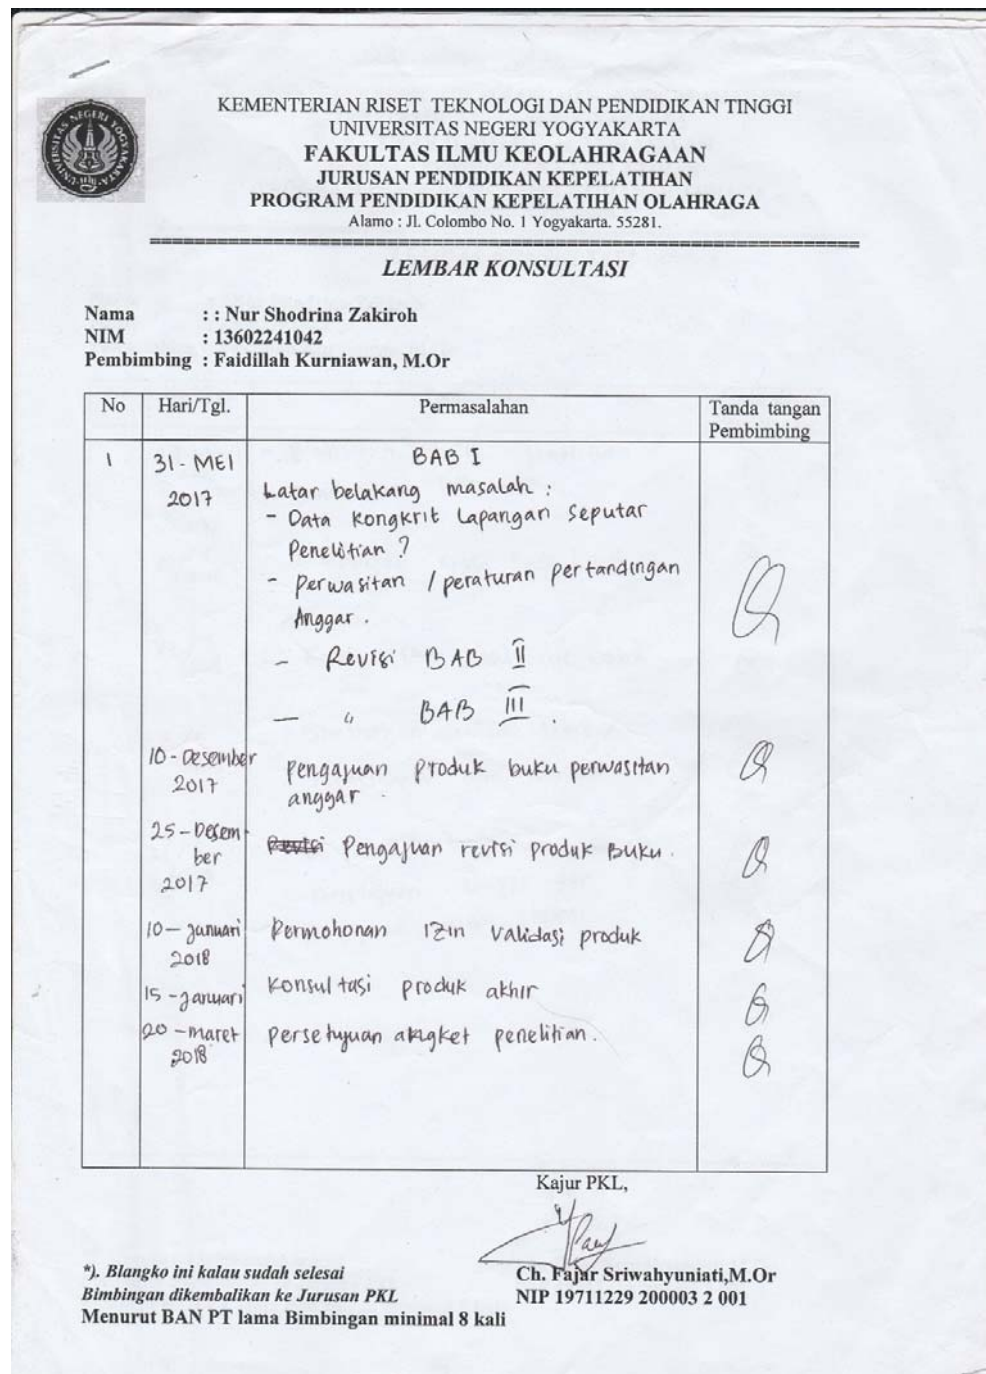 UNIVERSITAS NEGERI YOGYAKARTA
KEMENTERIAN RISET TEKNOLOGI DAN PENDIDIKAN TINGGI
UNIVERSITAS NEGERI YOGYAKARTA
FAKULTAS ILMU KEOLAHRAGAAN
JURUSAN PENDIDIKAN KEPELATIHAN
PROGRAM PENDIDIKAN KEPELATIHAN OLAHRAGA
Alamo : Jl. Colombo No. 1 Yogyakarta. 55281.
LEMBAR KONSULTASI
Nama : : Nur Shodrina Zakiroh
NIM : 13602241042
Pembimbing : Faidillah Kurniawan, M.Or
No Hari/Tgl. Permasalahan Tanda tangan
Pembimbing
1 31 - MEI BAB I
2017 Latar belakang masalah :
- Data kongkrit Lapangan seputar
Penelitian ?
- perwasitan / peraturan pertandingan
Anggar .
- Revisi BAB II
- " BAB III .
10 - Desember pengajuan produk buku perwasitan
2017 anggar .
25 - Desem Revisi Pengajuan revisi produk Buku .
ber
2017
10 - Januari Permohonan izin validasi produk
2018
15 - januari Konsultasi produk akhir
20 - maret persetujuan angket penelitian .
2018
Kajur PKL,
*). Blangko ini kalau sudah selesai
Bimbingan dikembalikan ke Jurusan PKL
Menurut BAN PT lama Bimbingan minimal 8 kali
Ch. Fajar Sriwahyuniati,M.Or
NIP 19711229 200003 2 001